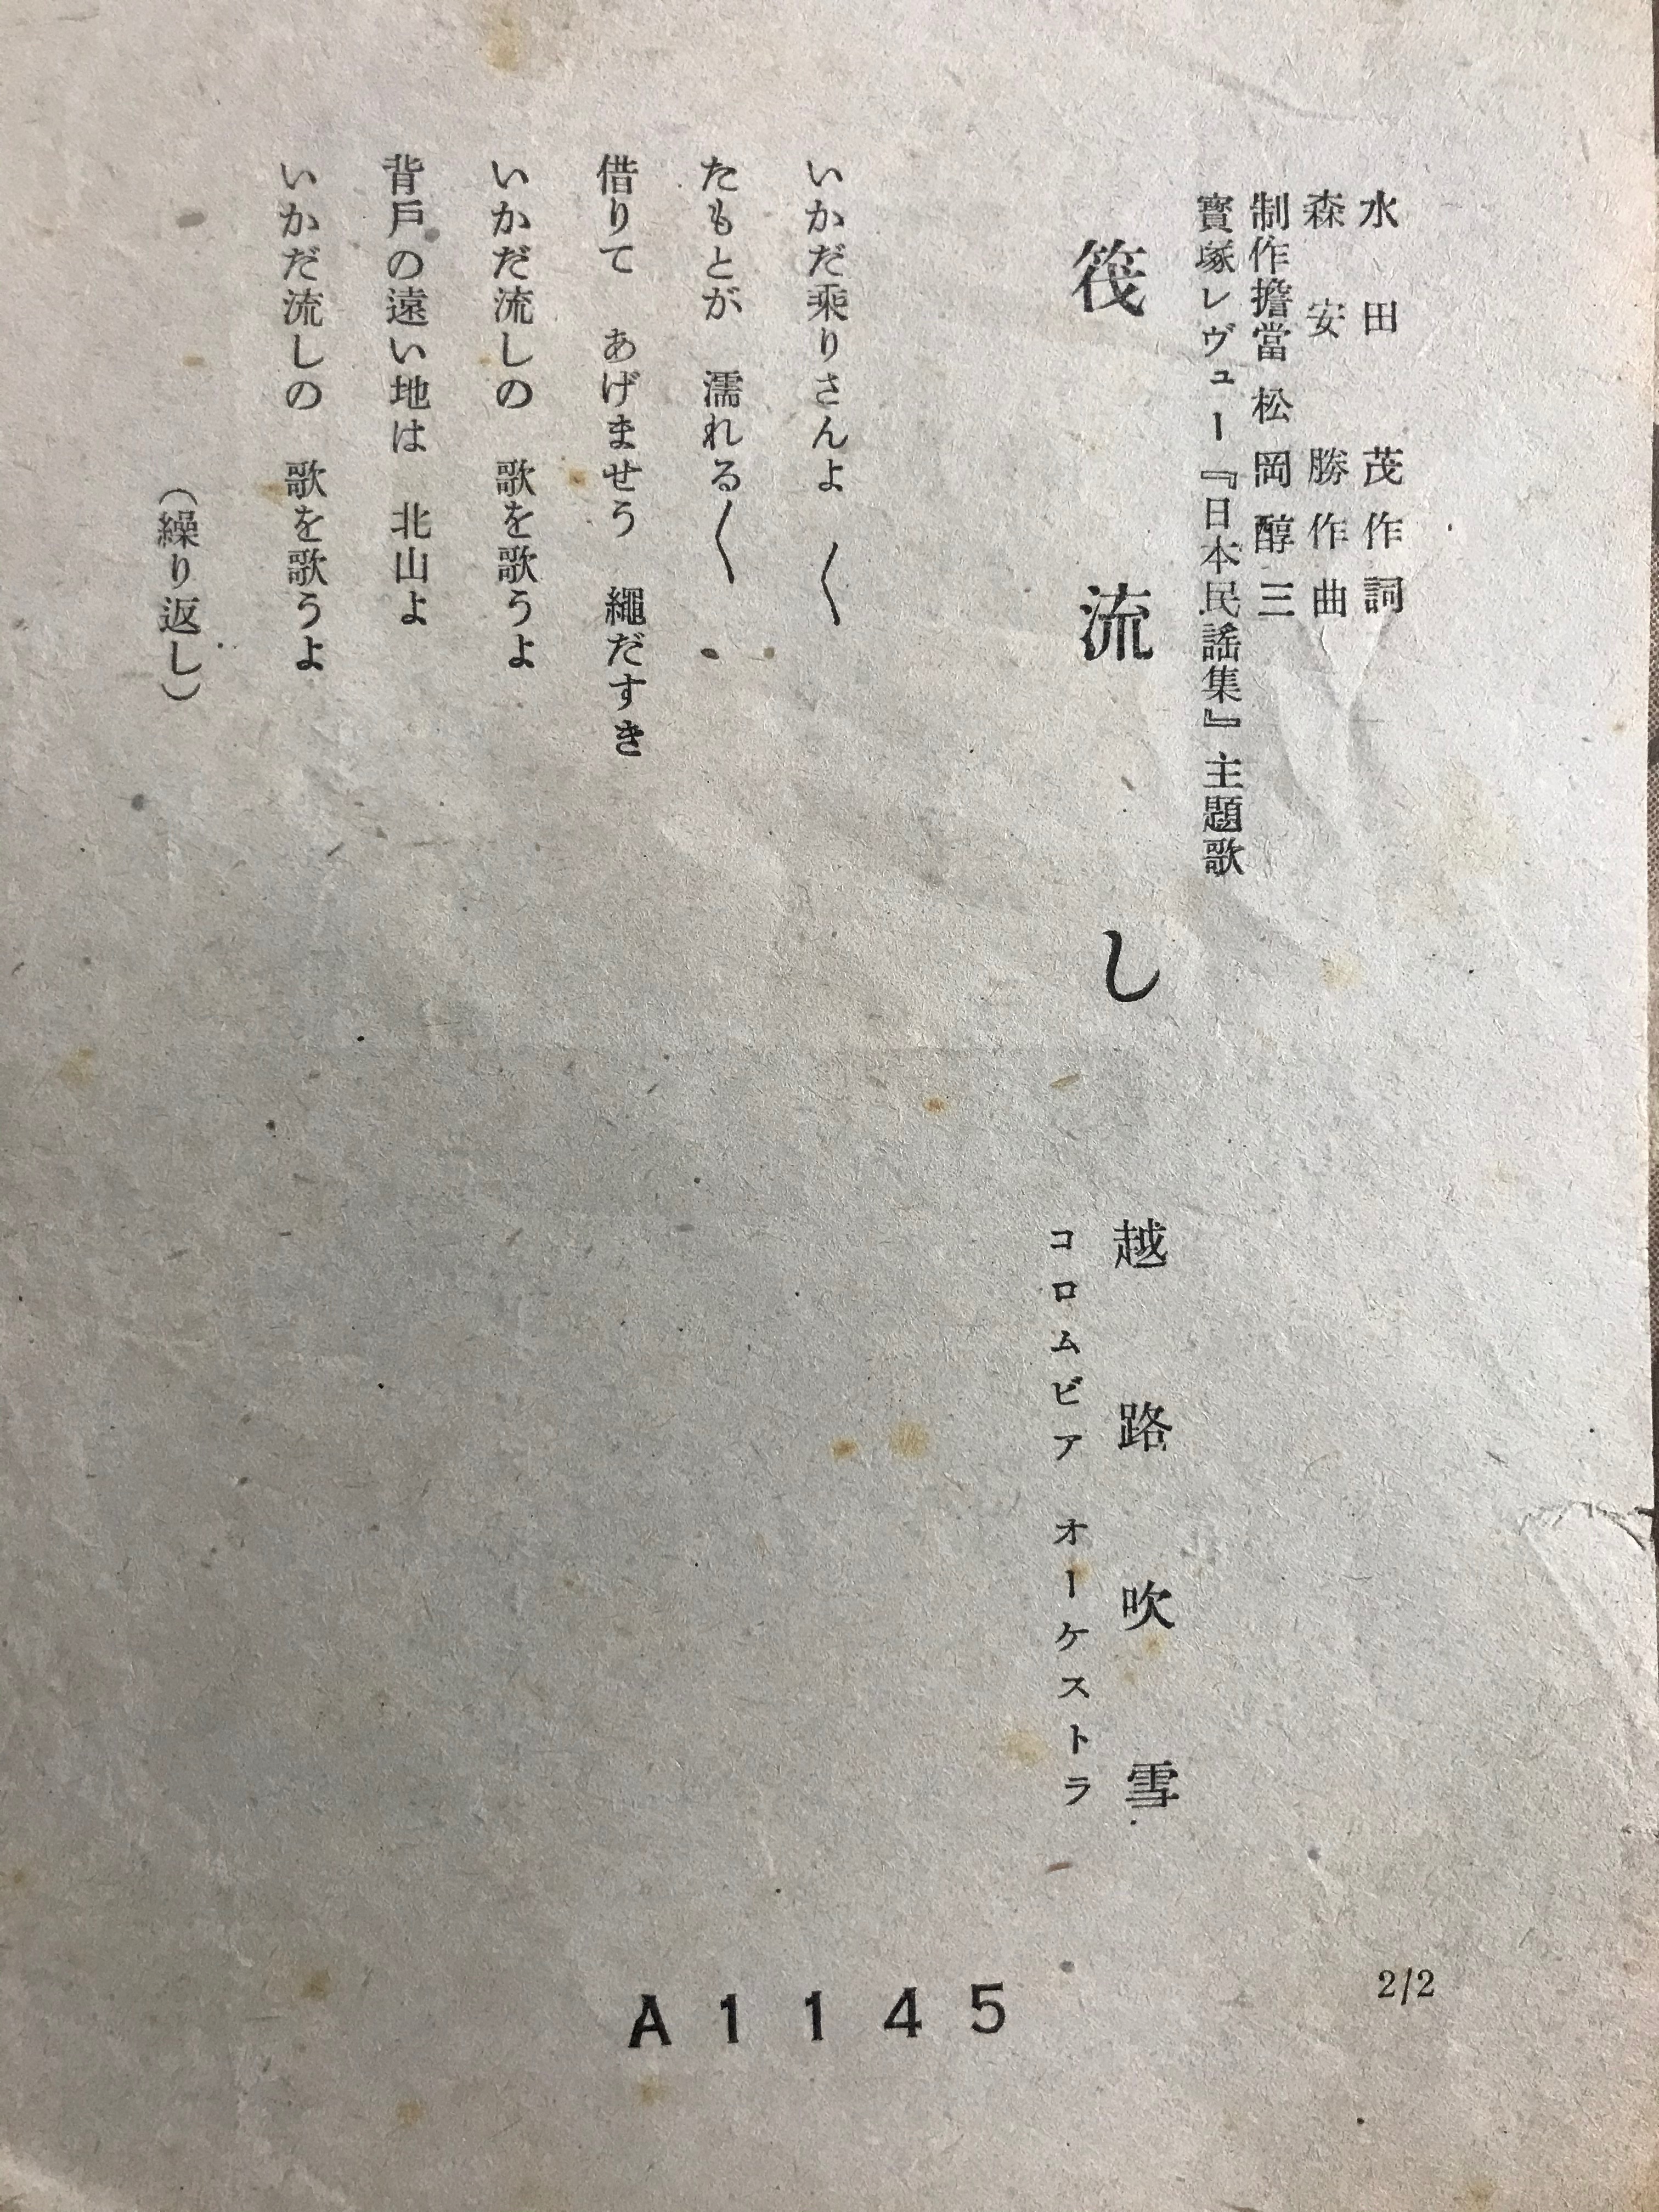 水田茂作詞
森安勝作曲
制作擔當 松岡醇三
寳塚レヴュー『日本民謠集』主題歌
筏流し
越路吹雪
コロムビア オーケストラ
いかだ乘りさんよ 〱
たもとが 濡れる〱
借りて あげませう 繩だすき
いかだ流しの 歌を歌うよ
背戸の遠い地は 北山よ
いかだ流しの 歌を歌うよ
（繰り返し）
2/2
A1145